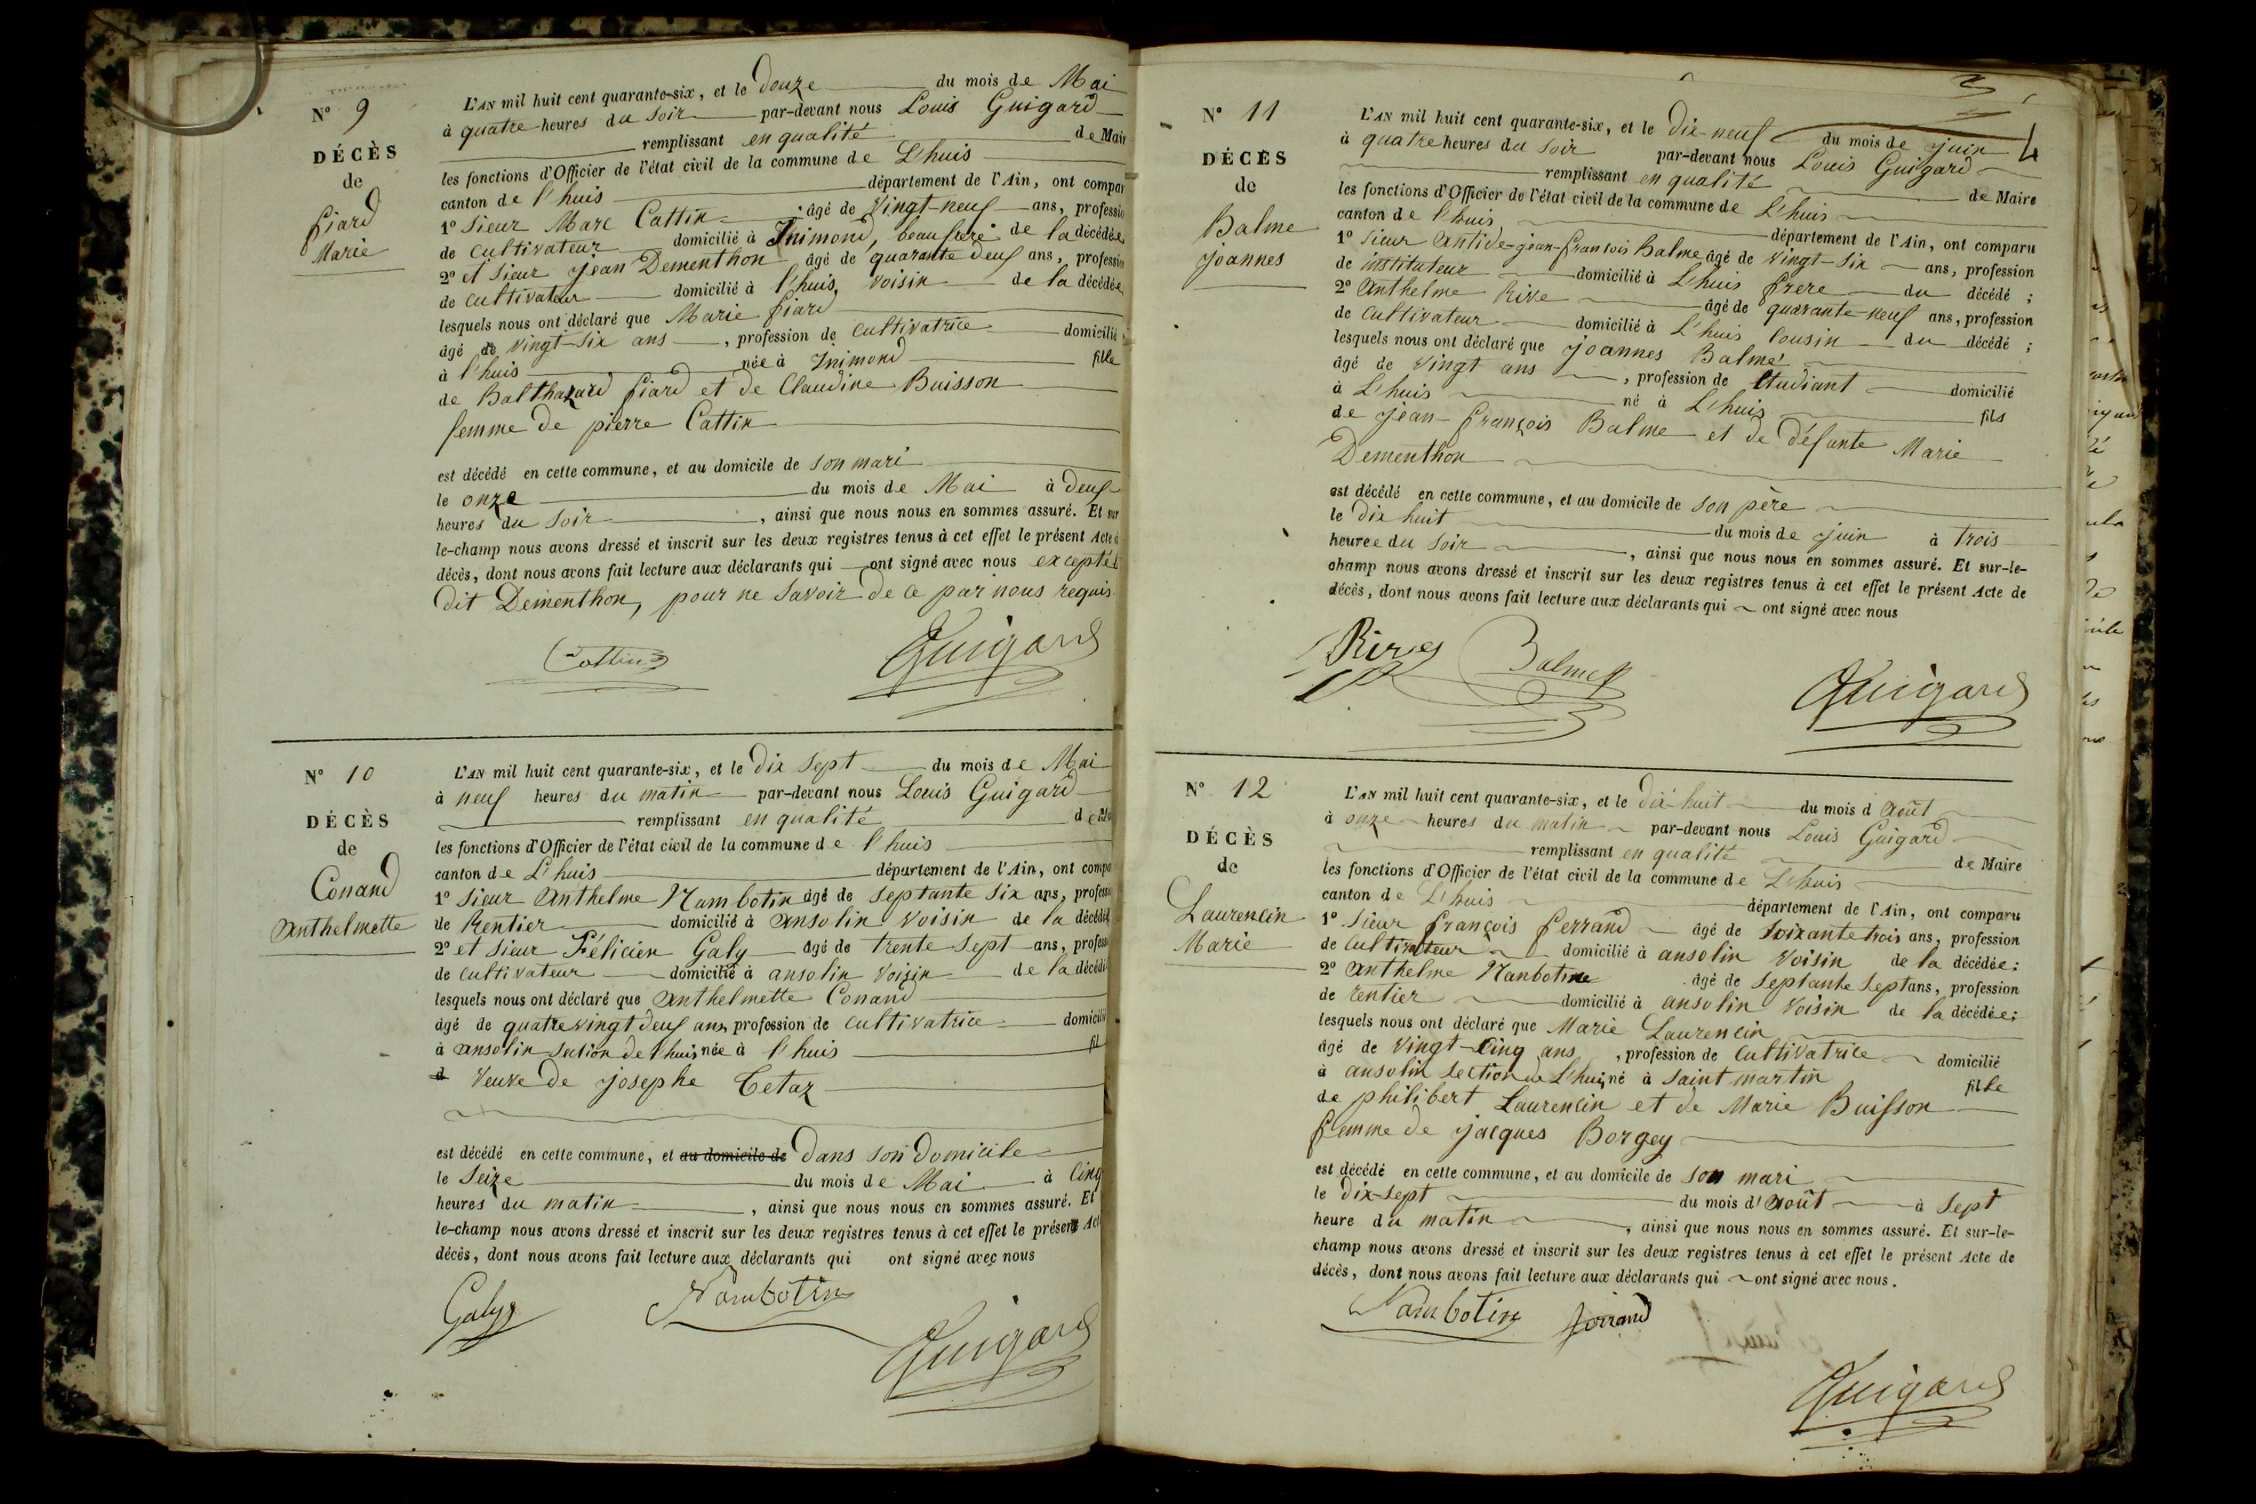 N° 9
DÉCÈS
de
Fiard
Marie
L'AN mil huit cent quarante-six, et le douze du mois de Mai
à quatre heures du soir par-devant nous Louis Guigard
remplissant en qualité de Mair
les fonctions d'Officier de l'état civil de la commune de L'huis
canton de l'huis département de l'Ain, ont compar
1° Sieur Marc Cattin âgé de vingt-neuf ans, professio
de cultivateur domicilié à Inimond, beau frere de la décédée
2° et Sieur Jean Dementhon âgé de quarante deux ans, professio
de cultivateur domicilié à l'huis, voisin de la décédée
lesquels nous ont déclaré que Marie fiard
âgé de vingt-six ans, profession de cultivatrice domicilié
à l'huis née à Inimond fille
de Balthazard fiard et de Claudine Buisson
femme de pierre Cattin
est décédé en cette commune, et au domicile de son mari
le onze du mois de Mai à deux
heures du soir, ainsi que nous nous en sommes assuré. Et sur
le-champ nous avons dressé et inscrit sur les deux registres tenus à cet effet le présent Acte d
décès, dont nous avons fait lecture aux déclarants qui ont signé avec nous excepté l
dit Dementhon, pour ne savoir de ce par nous requis
Cattin Guigard
N° 10
DÉCÈS
de
Conand
Anthelmette
L'AN mil huit cent quarante-six, et le dix sept du mois de Mai
à neuf heures du matin par-devant nous Louis Guigard
remplissant en qualité de Ma
les fonctions d'Officier de l'état civil de la commune de l'huis
canton de L'huis département de l'Ain, ont compa
1° Sieur Anthelme Nambotin âgé de septante six ans, profess
de Rentier domicilié à ansolin voisin de la décédé
2° et Sieur Félicien Galy âgé de trente sept ans, profess
de cultivateur domicilié à ansolin voisin de la décédé
lesquels nous ont déclaré que Anthelmette Conand
âgé de quatre vingt deux ans, profession de cultivatrice domicilié
à ansolin section de l'huis née à l'huis fil
d veuve de josephe Cetaz
est décédé en cette commune, et au domicile de Dans son Domicile
le Seize du mois de Mai à Cinq
heures du matin, ainsi que nous nous en sommes assuré. Et
le-champ nous avons dressé et inscrit sur les deux registres tenus à cet effet le présent Act
décès, dont nous avons fait lecture aux déclarants qui ont signé avec nous
Galy Nambotin
Guigard
4
N° 11
DÉCÈS
de
Balme
joannes
L'AN mil huit cent quarante-six, et le dix-neuf du mois de juin
à quatre heures du soir par-devant nous Louis Guigard
remplissant en qualité de Maire
les fonctions d'Officier de l'état civil de la commune de L'huis
canton de l'huis département de l'Ain, ont comparu
1° Sieur Antide-jean-françois Balme âgé de vingt-six ans, profession
de instituteur domicilié à L'huis frere du décédé ;
2° Anthelme Rive âgé de quarante-neuf ans, profession
de cultivateur domicilié à L'huis cousin du décédé ;
lesquels nous ont déclaré que joannes Balme
âgé de vingt ans, profession de Etudiant domicilié
à L'huis né à L'huis fils
de jean-françois Balme et de défunte Marie
Dementhon
est décédé en cette commune, et au domicile de son père
le dix huit du mois de juin à trois
heures du soir, ainsi que nous nous en sommes assuré. Et sur-le-
champ nous avons dressé et inscrit sur les deux registres tenus à cet effet le présent Acte de
décès, dont nous avons fait lecture aux déclarants qui ont signé avec nous
Rives Balme
Guigard
N° 12
DÉCÈS
de
Laurencin
Marie
L'AN mil huit cent quarante-six, et le dix-huit du mois d Août
à onze heures du matin par-devant nous Louis Guigard
remplissant en qualité de Maire
les fonctions d'Officier de l'état civil de la commune de L'huis
canton de L'huis département de l'Ain, ont comparu
1° Sieur françois ferrand âgé de soixante trois ans, profession
de cultivateur domicilié à ansolin voisin de la décédée:
2° Anthelme Nanbotin âgé de septante sept ans, profession
de rentier domicilié à ansolin voisin de la décédée;
lesquels nous ont déclaré que Marie Laurencin
âgé de vingt-Cinq ans, profession de cultivatrice domicilié
à ansolin section de L'huis, né à saint martin fille
de philibert Laurencin et de Marie Buisson
femme de jacques Borgey
est décédé en cette commune, et au domicile de son mari
le dix-sept du mois d'Août à sept
heure du matin, ainsi que nous nous en sommes assuré. Et sur-le-
champ nous avons dressé et inscrit sur les deux registres tenus à cet effet le présent Acte de
décès, dont nous avons fait lecture aux déclarants qui ont signé avec nous.
Nambotin ferrand
Guigard